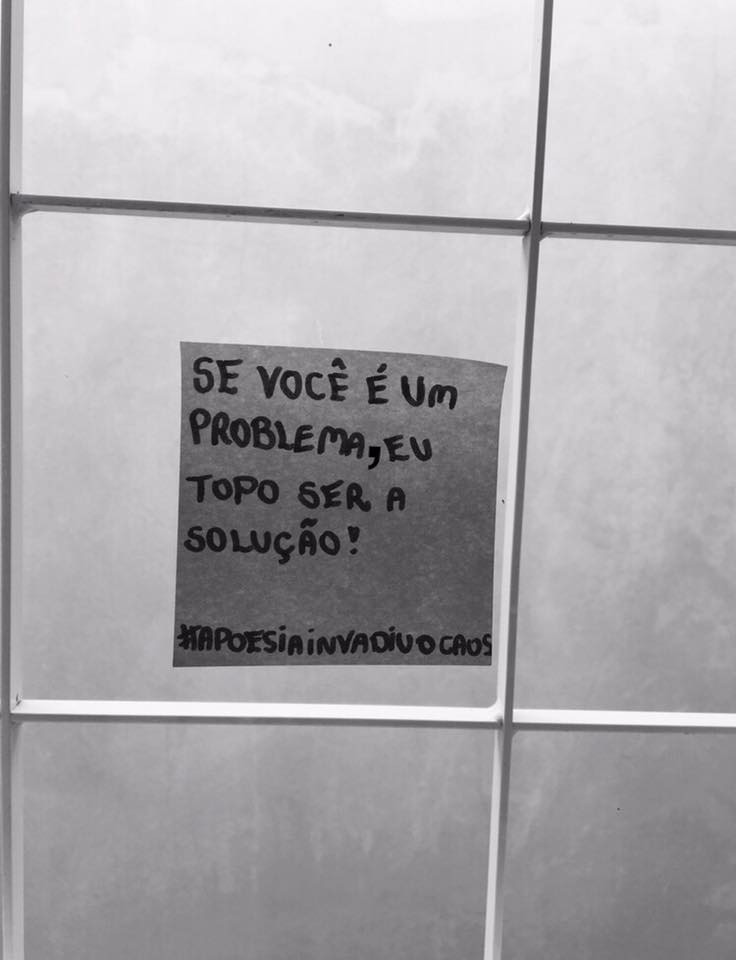 SE VOCÊ É UM
PROBLEMA, EU
TOPO SER A
SOLUÇÃO!
#APOESIAINVADIUOCAOS